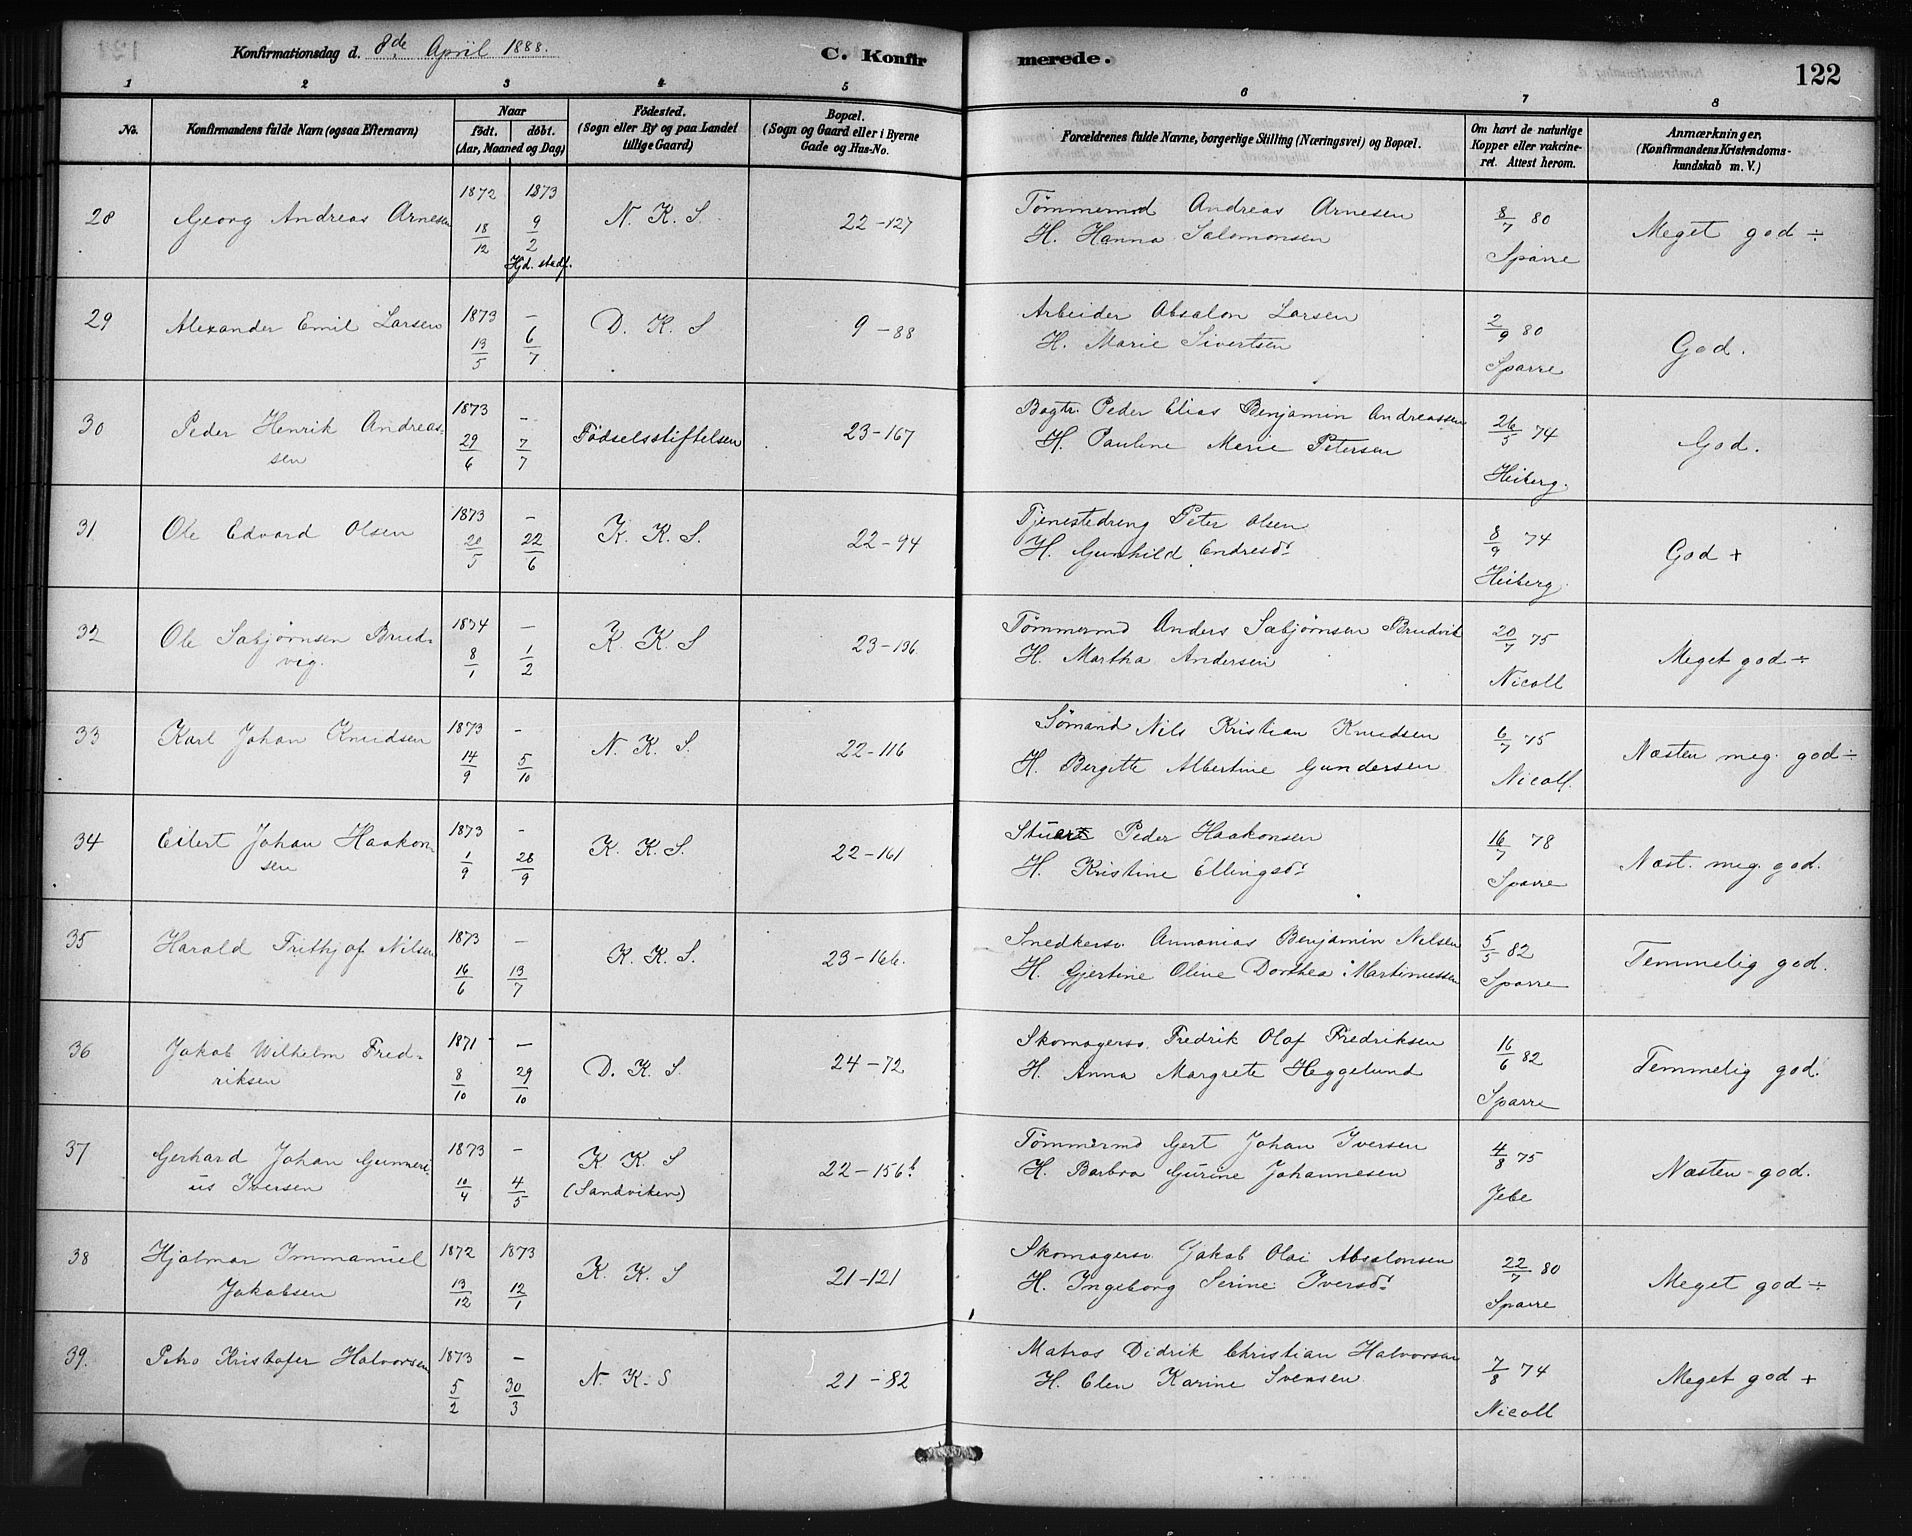 Konfirmationsdag d. 8de April 1888.
C. Konfirmerede.
122
1 2 3 4 5 6 7 8
No.
Konfirmandens fulde Navn (ogsaa Efternavn)
Naar
født. døbt.
(Aar, Maaned og Dag)
Fødested.
(Sogn eller By og paa Landet
tillige Gaard)
Bopæl.
(Sogn og Gaard eller i Byerne
Gade og Hus-No.
Forældrenes fulde Navne, borgerlige Stilling (Næringsvei) og Bopæl.
Om havt de naturlige
Kopper eller vakcine-
ret. Attest herom.
Anmærkninger,
(Konfirmandens Kristendoms-
kundskab m. V.)
28 Georg Andreas Arnesen 1872 18/12 1873 9/2 Hjd. stadf. N. K. S. 22-127 Tømmermd Andreas Arnesen
H. Hanna Salomonsen 8/7 80 Sparre Meget god ÷
29 Alexander Emil Larsen 1873 13/5 – 6/7 D. K. S 9-88 Arbeider Absalon Larsen
H. Marie Sivertsen 2/9 80 Sparre God.
30 Peder Henrik Andreas-
sen 1873 29/6 – 7/7 Fødselsstiftelsen 23-167 Bagtr. Peder Elias Benjamin Andreassen
H. Pauline Merie Petersen 26/5 74 Heiberg. God.
31 Ole Edvard Olsen 1873 20/5 – 22/6 K. K. S. 22-94 Tjenestedreng Peter Olsen
H. Gunhild Endresdr 8/9 74 Heiberg God +
32 Ole Sæbjørnsen Brud-
vig. 1874 8/1 – 1/2 K. K. S 23-136 Tømmermd Anders Sæbjørnsen Brudvik
H. Martha Andersen 20/7 75 Nicoll Meget god ÷
33 Karl Johan Knudsen 1873 14/9 – 5/10 N. K. S. 22-116 Sømand Nils Kristian Knudsen
H. Bergitte Albertine Gundersen 6/7 75 Nicoll. Næsten meg. god ÷
34 Eilert Johan Haakon-
sen 1873 1/9 – 28/9 K. K. S. 22-161 Stuert Peder Haakonsen
H. Kristine Ellingsdr 16/7 78 Sparre Næst. meg. god.
35 Harald Frithjof Nilsen 1873 16/6 – 13/7 K. K. S. 23-166. Snedkersv. Annanias Benjamin Nilsen
H. Gjertine Oline Dorthea Martinussen 5/5 82 Sparre Temmelig god.
36 Jakob Wilhelm Fred-
riksen 1871 8/10 – 29/10 D. K. S 24-72 Skomagersv. Fredrik Olaf Fredriksen
H. Anna Margrete Heggelund 16/6 82 Sparre Temmelig god.
37 Gerhard Johan Gunneri-
us Iversen 1873 10/4 – 4/5 K K. S
(Sandviken) 22-156b Tømmermd Gert Johan Iversen
H. Barbra Gurine Johannesen 4/8 75 Jebe Næsten god.
38 Hjalmar Immanuel
Jakobsen 1872 13/12 1873 12/1 K. K. S 21-121 Skomagersv Jakob Olai Absalonsen
H. Ingeborg Serine Iversdr 22/7 80 Sparre Meget god ÷
39. Petro Kristofer Halvorsen 1873 5/2 – 30/3 N. K. S 21-82 Matros Didrik Christian Halvorsen
H. Elen Karine Svensen 7/8 74 Nicoll Meget god +